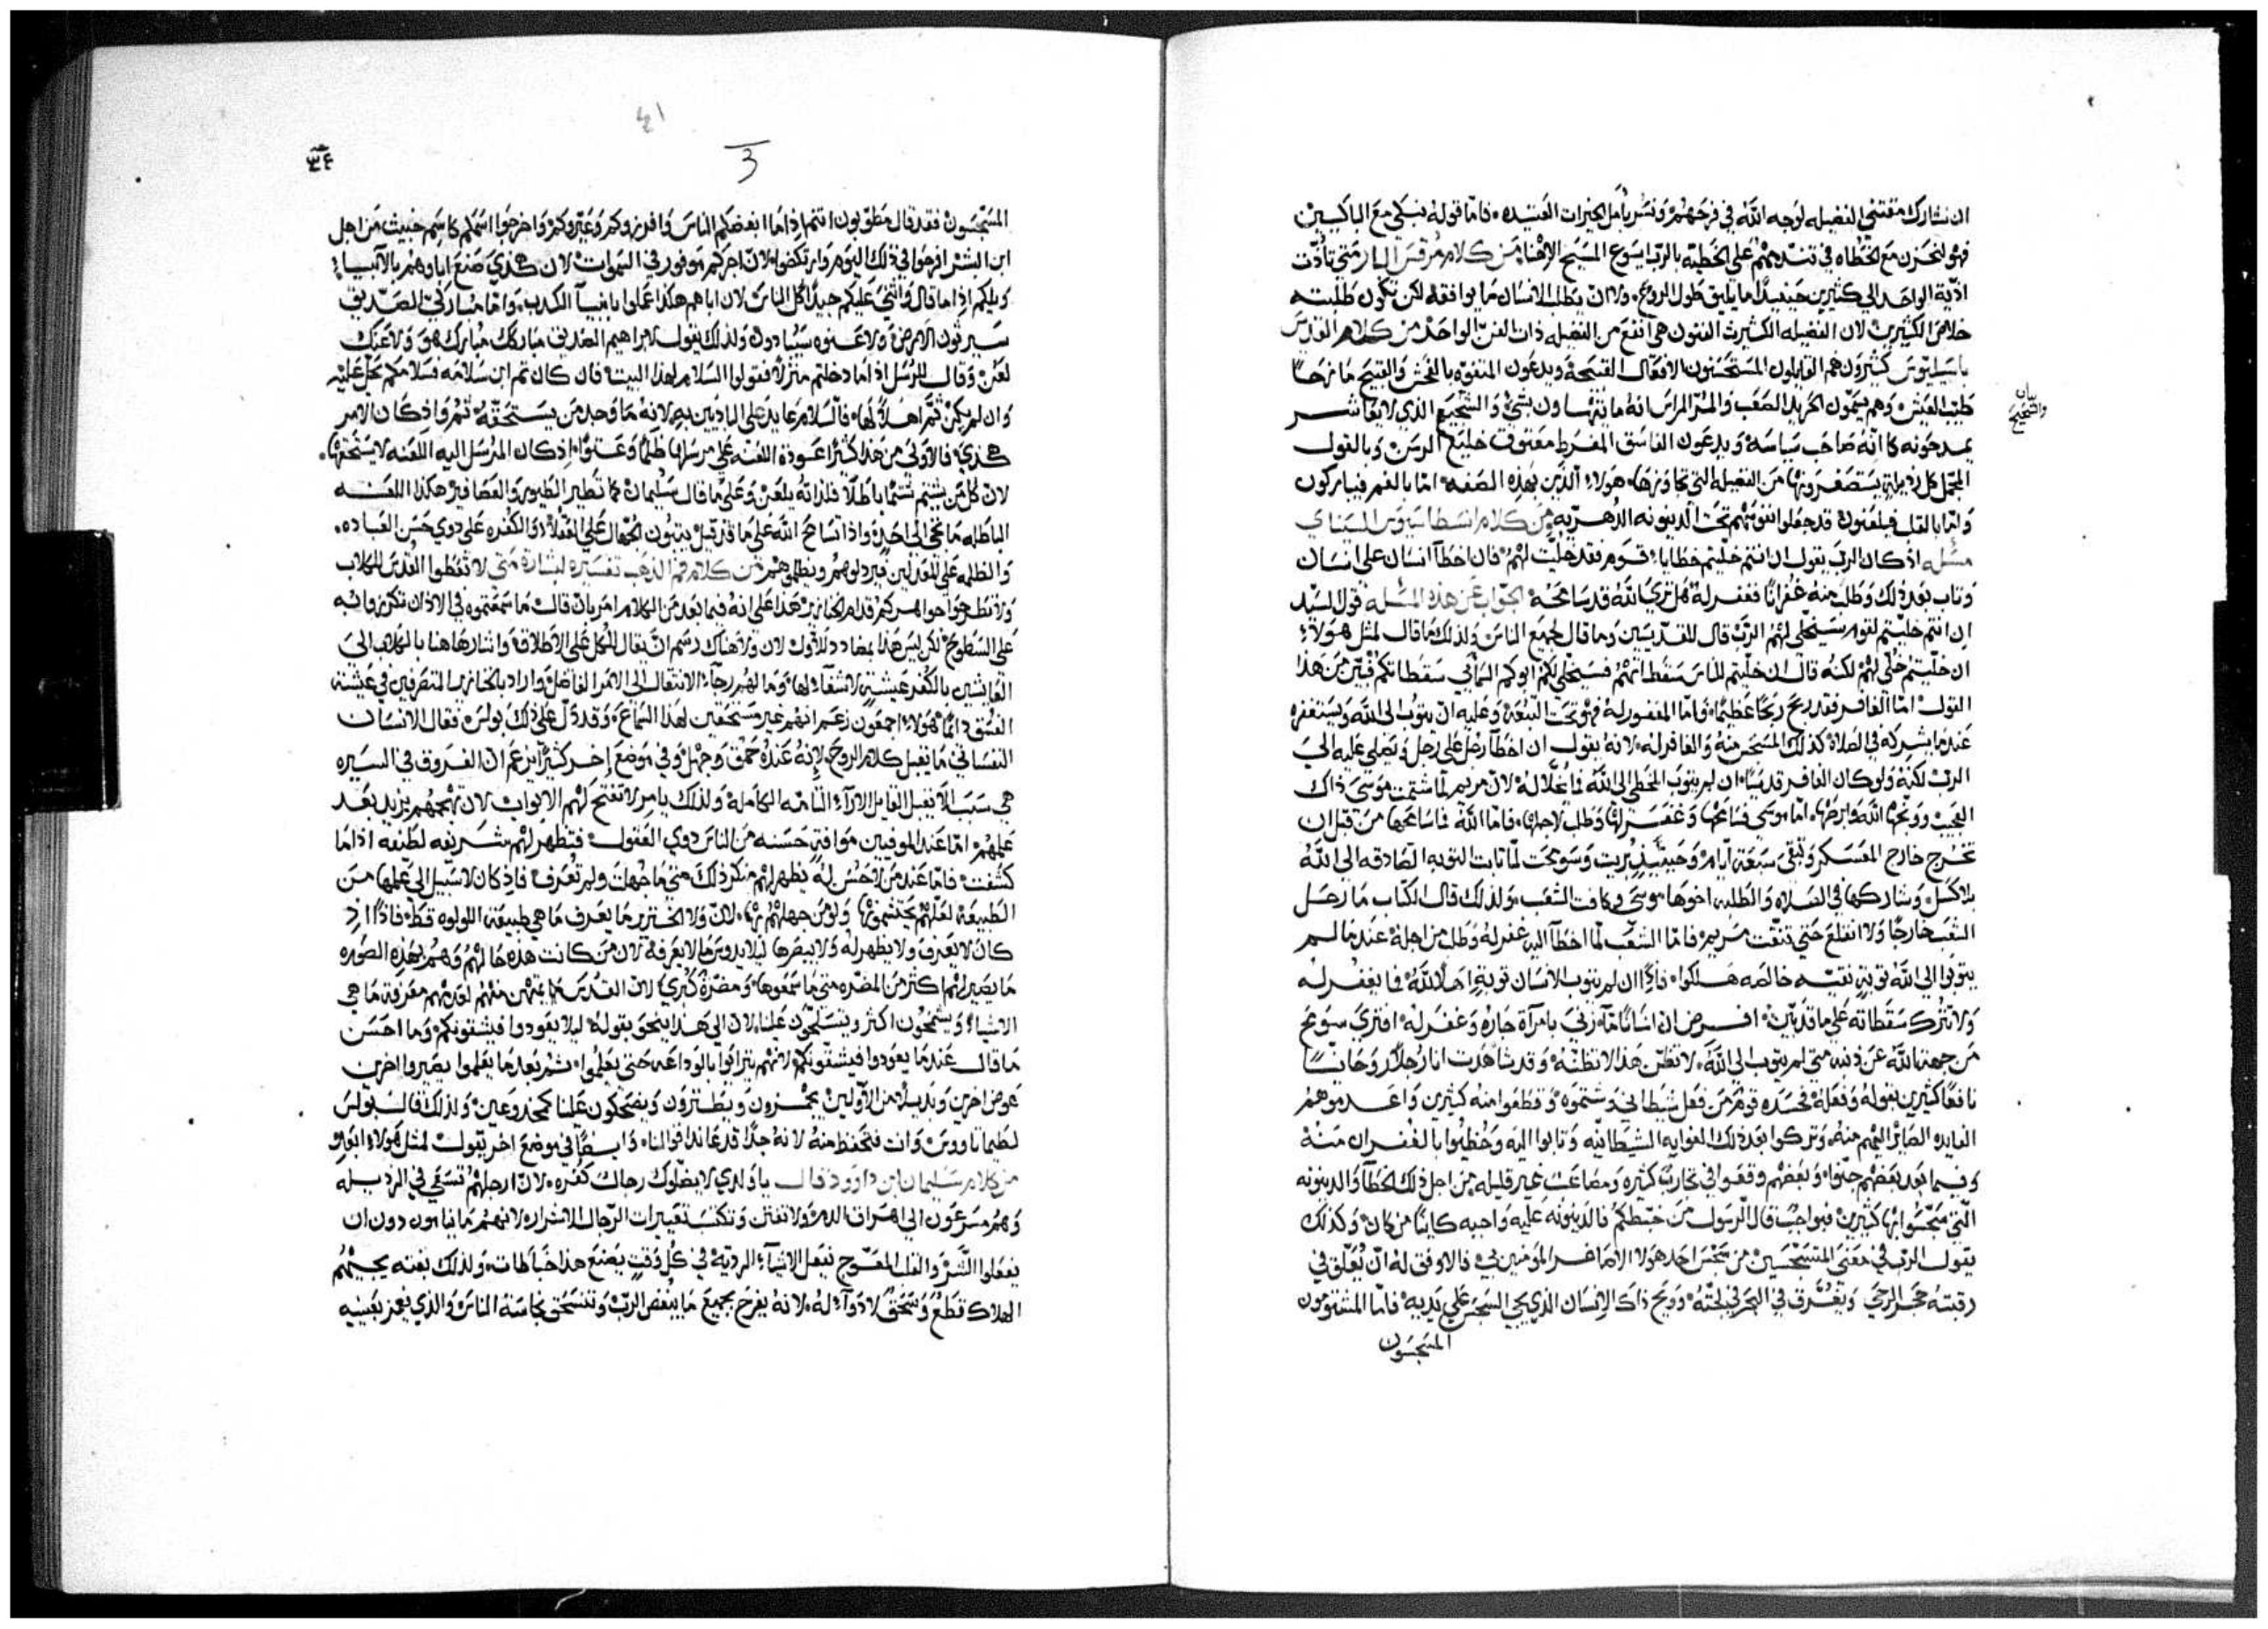 ان نشارك مقتني الفضيله لوجه الله في فرحهم ونسر بأمل الخيرات العتيده فاما قوله نبكي مع الباكيين
فهو لنحزن مع الخطاه في تندمهم على الخطية بالرب ايسوع المسيح الاهنا من كلام مرقس المار متي تأدت
اذية الواحد الى كثيرين حينيذ ما يليق طول الروح ولا ان يطلب الانسان ما يوافقه لكن تكون طلبته
خلاص الكثيرين لان الفضيله الكثيرت الفنون هي انفع من الفضيله ذات الفن الواحد من كلام القديس
باسيليوس كثيرون هم القايلون المستحسنون الافعال القبيحة ويدعون المتفوه بالفحش والقبيح مازحاً
طيب العيش وهم يسمون الحريد الصعب والمر المراس انه ما يتهاون بشي والشحيح الذي لا يعاشر
بيان والشحيح
يمدحونه كانه صاحب سياسه ويدعون الفاسق المفرط معتوق خليع الرسن وبالقول
المجمل كل رذيلة يستصغرونها من الفضيلة التي تجاورها هولاء الذين بهذه الصفه اما بالفم فيباركون
واما بالقلب فيلعنون قد جعلوا نفوسهم تحت الدينونه الدهريه من كلام انسطاسيوس السيناي
مسئله اذ كان الرب يقول ان انتم خليتم خطايا قوم فقد خليت لهم فان اخطأ انسان على انسان
وتاب بعد ذلك وطلب منه غفرانًا فغفر له هل ترى الله قد سامحه الجواب عن هذه المسئله قول السيد
ان انتم خليتم لقوم سيخلى لهم الرب قال للقديسين وما قال لجميع الناس ولذلك ما قال لمثل هولاء
ان خليتم خلي لهم لكنه قال ان خليتم للناس سقطاتهم فسيخلي لكم ابوكم السمأيي سقطاتكم فبين من هذا
القول اما الغافر فقد ربح ربحاً عظيما واما المغفور له فهو تحت التبعة وعليه ان يتوب الى الله ويستغفره
عندما يشركه في الصلاة كذلك المسَتحسن منه والغافر له لانه يقول ان اخطأ رجل على رجل ويصلي عليه الي
الرب لكنه ولو كان الغافر قديسًا ان لم يتوب المخطي الى الله لان مريم لما شتمت موسى ذاك
العجيب ووبخها الله وابرصها اما موسى فسامحها وغفر لها وطلب لاجلها فاما الله فما سامحها من قبل ان
تخرج خارج المعسكر وتبقى سبعة ايام وحينيذ بريت وسومحت لما تابت التوبه الصادقه الى الله
بلا كسل وشاركها في الصلاه والطلبه اخوها موسى وكافة الشعب ولذلك قال الكتاب ما رحل
الشعب خارجًا ولا انقلع حتى تنقت مريم فاما الشعب لما اخطأ اليه غفر له وطلب من اجله عندما لم
يتوبوا الى الله توبة نقيه خالصه هلكوا فاذا ان لم يتوب الانسان توبة اهلا لله فما يغفر له
ولا تترك سقطاته على ما قد تبين افرض ان انسانًا ما زنى بامرأة جاره وغفر له افترى سومح
من جهة الله عن ذنبه متى لم يتوب الى الله لا تظن هذا لا تظنه وقد شاهدت انا رجلا روحانيًا
نافعًا كثيرين بقوله وفعله فحسده قوم من فعل شيطاني وشتموه وقطعوا منه كثيرين واعدموهم
الفايده الصايره اليهم منه وتركوا بعد ذلك الغوايه الشيطانيه وتابوا اليه وحظيوا بالغفران منه
وفيما بعد بعضهم جنوا وبعضهم وقعوا في تجارب كثيره ومصاعب غير قليله من اجل ذلك الخطأ والدينونه
التي سجسوا بها كثيرين فبواجب قال الرسول من خبطكم فالدينونه عليه واجبه كاينًا من كان وكذلك
يقول الرب في معنى المتسجسين من سجس احد هولاء الاصاغر المومنين بي فالاوفق له ان يعلق في
رقبته حجر الرحي ويغرق في البحر في لجته وويح ذاك الانسان الذي يجي السجس على يديه فاما المشتومون
المسجسون
٣٤
٤١
3
المسجسون فقد قال مطوبون انتم اذا ما ابغضكم الناس وافرزوكم وعيروكم واخرجوا اسمكم كاسم خبيث من اجل
ابن البشر افرحوا في ذلك اليوم وارتكضوا لان اجركم موفور في السموات لان هكذى صنع اباوهم بالانبياء
ويلكم اذا ما قال واثنى عليكم جيدًا كل الناس لان اباهم هكذا عملوا بانبيآ الكدب واما مباركي الصديق
سيرثون الارض ولاعنوه سيبادون ولذلك يقول لابراهيم الصديق مباركك مبارك هو ولاعنك
لعن وقال للرسل اذا ما دخلتم منزلاً فقولوا السلام لهذا البيت فان كان ثم ابن سلامه فسلامكم يحل عليه
وان لم يكن ثم اهلاً لها فالسلام عايد على البادئين به لانه ما وجد من يستحقه ثم واذ كان الامر
هكذي فالاولى من هذا كثيرًا عودة اللعنه على مرسلها ظلمًا وعتوًا اذ كان المرسل اليه اللعنه لا يستحقها
لان كل من يشتم شتمًا باطلا فلذاته يلعن وعلى ما قال سليمان كما تطير الطيور والعصافير هكذا اللعنه
الباطله ما تجي الى احد واذا تسامح الله على ما قد قيل يثبون الجهال على العقلاء والكفره على دوي حسن العباده
والظلمه على المعدلين فيردلوهم ويظلموهم من كلام فم الذهب تفسيره لبشارة متى لا تعطوا القدس للكلاب
ولا تطرحوا جواهركم قدام الخنازير هذا على انه فيما بعد من الكلام امر بان قال ما سمعتموه في الاذان تكرزوا به
على السطوح لكن ليس هذا بمضادد للاول لان ولا هناك رسم ان يقال للكل على الاطلاق واشار هاهنا بالكلاب الى
العايشين بالكفر عيشة لا شفاء لها وما لهم رجاء الانتقال الى الامر الفاضل واراد بالخنازير المتصرفين في عيشة
الفسق دائمًا هولاء اجمعون زعم انهم غير مستحقين لهذا السماع وقد دل على ذلك بولس فقال الانسان
النفساني ما يقبل كلام الروح لانه عنده حمق وجهل وفي موضع اخر كثيرًا يزعم ان الفروق في السيره
هي سبب الا يقبل القايل الارآء التامه الكامله ولذلك يامر لا تفتح لهم الابواب لان تهجمهم يزيد بعد
علمهم اما عند الموفيين موافية حسنه من الناس ذوي العقول فتظهر لهم شريفه لطيفه اذا ما
كشفت فاما عند من لا حس له يظهر لهم منكر ذلك متى ما جهلت ولم تعرف فاذ كان لا سبيل الى علمها من
الطبيعة لعلهم يحتشمونها ولو من جهلهم بها لان ولا الخنزير ما يعرف ما هي طبيعة اللولوه قط فاذا اذ
كان لا يعرف ولا يظهر له ولا يبصرها ليلا يدوس ما لا يعرفه لان من كانت هذه حالهم وهم بهذه الصوره
ما يصير لهم اكثر من المضره متى ما سمعوها ومضرة كبرى لان القدس ما يمتهن منهم لعدمهم معرفة ما هي
الاشياء ويشمخون اكثر ويتسلحون علينا لان الى هذا ينحو بقوله ليلا يعودوا فيشقونكم وما احسن
ما قال عندما يعودوا فيشقونكم لانهم يترايوا بالوداعه حتى يعلموا ثم بعدما يعلموا يصيروا اخرين
عوض اخرين وبديلاً من الاولين يهزون ويطنزون ويضحكون علينا كمخدوعين ولذلك قال بولس
لطيماثاووس وانت فتحفظ منه لانه جدًا قد عاند اقوالنا وايضًا في موضع اخر يقول لمثل هولاء ابعد
من كلام سليمان ابن داوود قال يا ولدي لا يضلوك رجال كفره لان ارجلهم تسعي في الرذيله
وهم مسرعون الى اهراق الدم ولا تقتن وتكتسب تعييرات الرجال الاشرار لانهم ما ينامون دون ان
يفعلوا الشر والقلب المعوج يفعل الاشياء الرديه في كل وقت يصنع هذا خباطات ولذلك بغته يجيهم
الهلاك قطع وسحق لا دوآء له لانه يفرح بجميع ما يبغض الرب وتنسحق نجاسة الناس والذي يغمز بعينيه